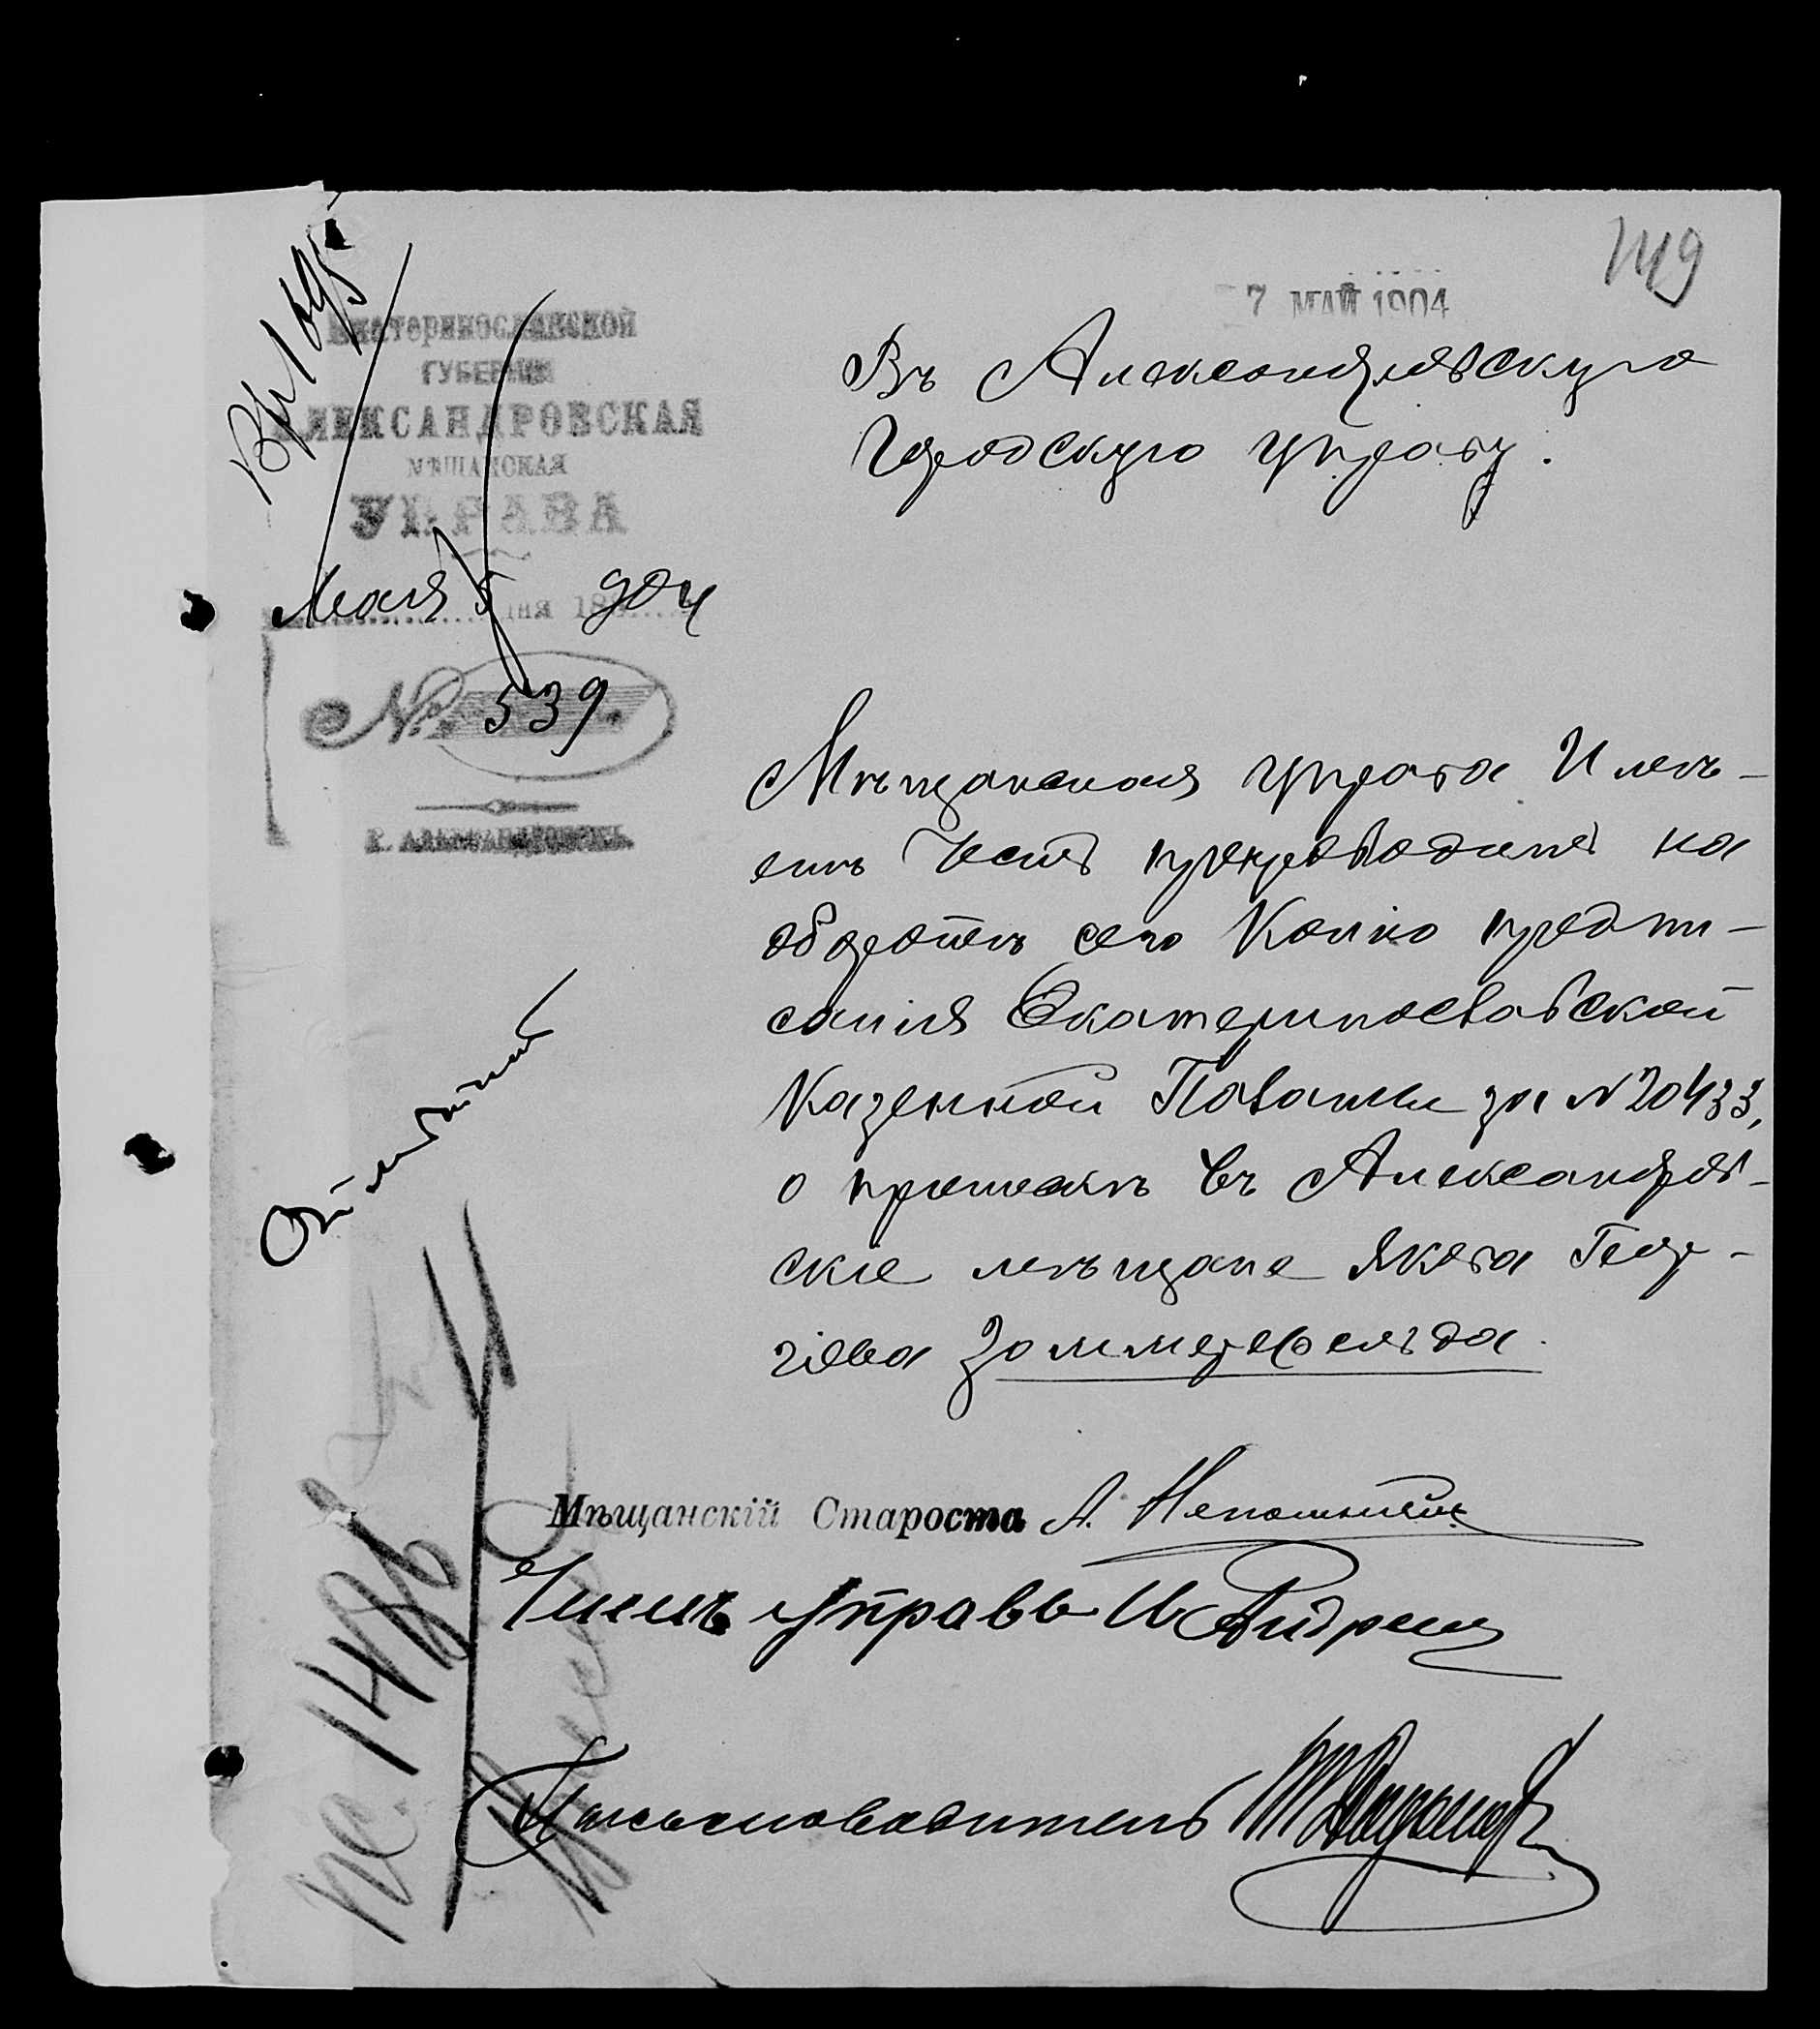 149
7 МАЙ 1904
Вх 1695
Екатеринославской
ГУБЕРНІИ
АЛЕКСАНДРОВСКАЯ
МѢЩАНСКАЯ
УПРАВА
Мая 5 дня 18 904
№ 539
Г. АЛЕКСАНДРОВСКЪ
Въ Александровскую
Городскую Управу.
Мѣщанская Управа Имѣ-
етъ Честь препроводить на
оборотѣ сего Копію предпи-
санія Екатеринославской
Казенной Палаты за №20433,
о припискѣ въ Александров-
скіе мѣщане Якова Геор-
гіева Зоммерфельда.
Мѣщанскій Староста А.
Членъ Управы
Письмоводитель